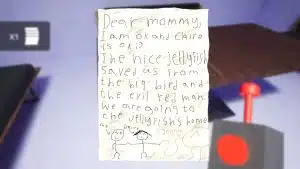 x1
Dear mommy,
I am ok and Claire
is ok.
The nice jellyfish
saved us from
the big bird and
the evil red man.
we are going to
the jellyfish's home